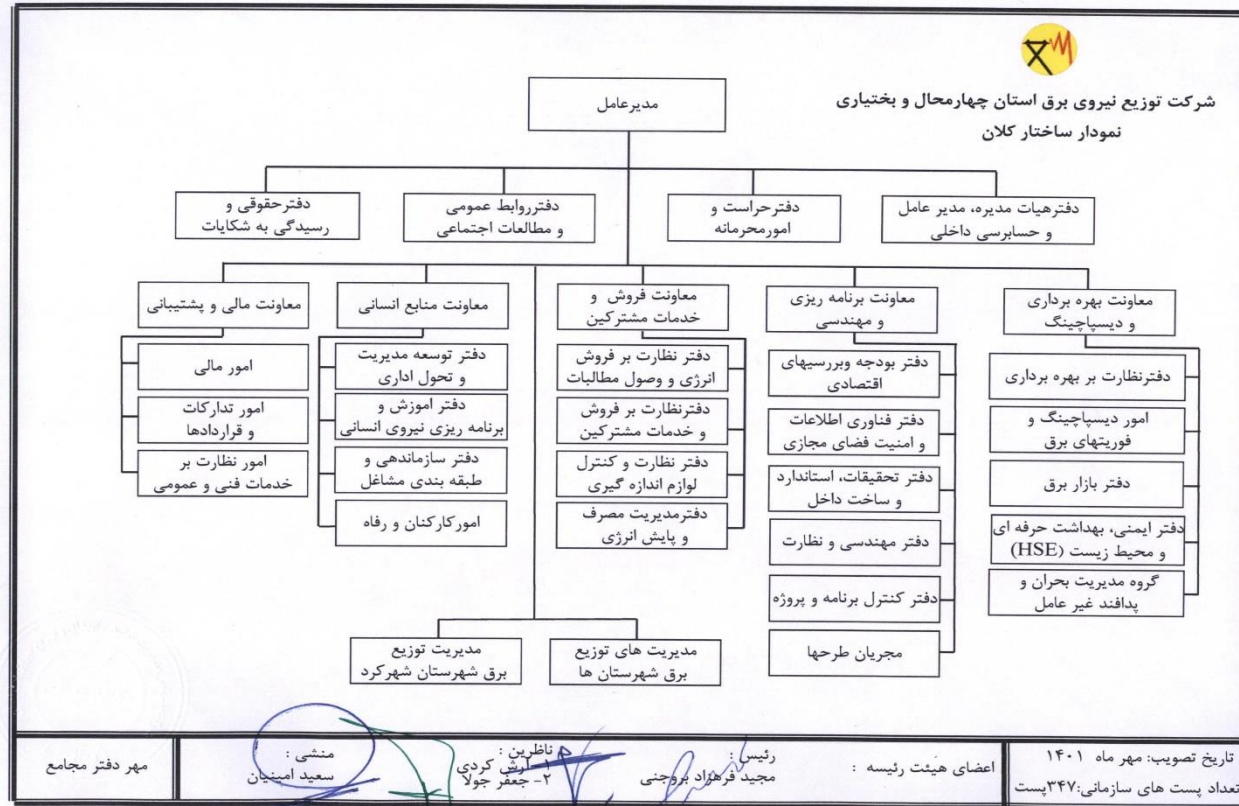 شرکت توزیع نیروی برق استان چهارمحال و بختیاری
نمودار ساختار کلان
مدیرعامل
دفترهیات مدیره، مدیر عامل
و حسابرسی داخلی
دفترحراست و
امورمحرمانه
دفترروابط عمومی
و مطالعات اجتماعی
دفترحقوقی و
رسیدگی به شکایات
معاونت بهره برداری
و دیسپاچینگ
دفترنظارت بر بهره برداری
امور دیسپاچینگ و
فوریتهای برق
دفتر بازار برق
دفتر ایمنی، بهداشت حرفه ای
و محیط زیست (HSE)
گروه مدیریت بحران و
پدافند غیر عامل
معاونت برنامه ریزی
و مهندسی
دفتر بودجه وبررسیهای
اقتصادی
دفتر فناوری اطلاعات
و امنیت فضای مجازی
دفتر تحقیقات، استاندارد
و ساخت داخل
دفتر مهندسی و نظارت
دفتر کنترل برنامه و پروژه
مجریان طرحها
معاونت فروش و
خدمات مشترکین
دفتر نظارت بر فروش
انرژی و وصول مطالبات
دفترنظارت بر فروش
و خدمات مشترکین
دفتر نظارت و کنترل
لوازم اندازه گیری
دفترمدیریت مصرف
و پایش انرژی
معاونت منابع انسانی
دفتر توسعه مدیریت
و تحول اداری
دفتر اموزش و
برنامه ریزی نیروی انسانی
دفتر سازماندهی و
طبقه بندی مشاغل
امورکارکنان و رفاه
معاونت مالی و پشتیبانی
امور مالی
امور تدارکات
و قراردادها
امور نظارت بر
خدمات فنی و عمومی
مدیریت های توزیع
برق شهرستان ها
مدیریت توزیع
برق شهرستان شهرکرد
تاریخ تصویب: مهر ماه ۱۴۰۱
تعداد پست های سازمانی:۳۴۷پست
اعضای هیئت رئیسه :
رئیس :
مجید فرهزاد بروجنی
ناظرین :
۱- آرش کردی
۲- جعفر جولا
منشی :
سعید امینیان
مهر دفتر مجامع